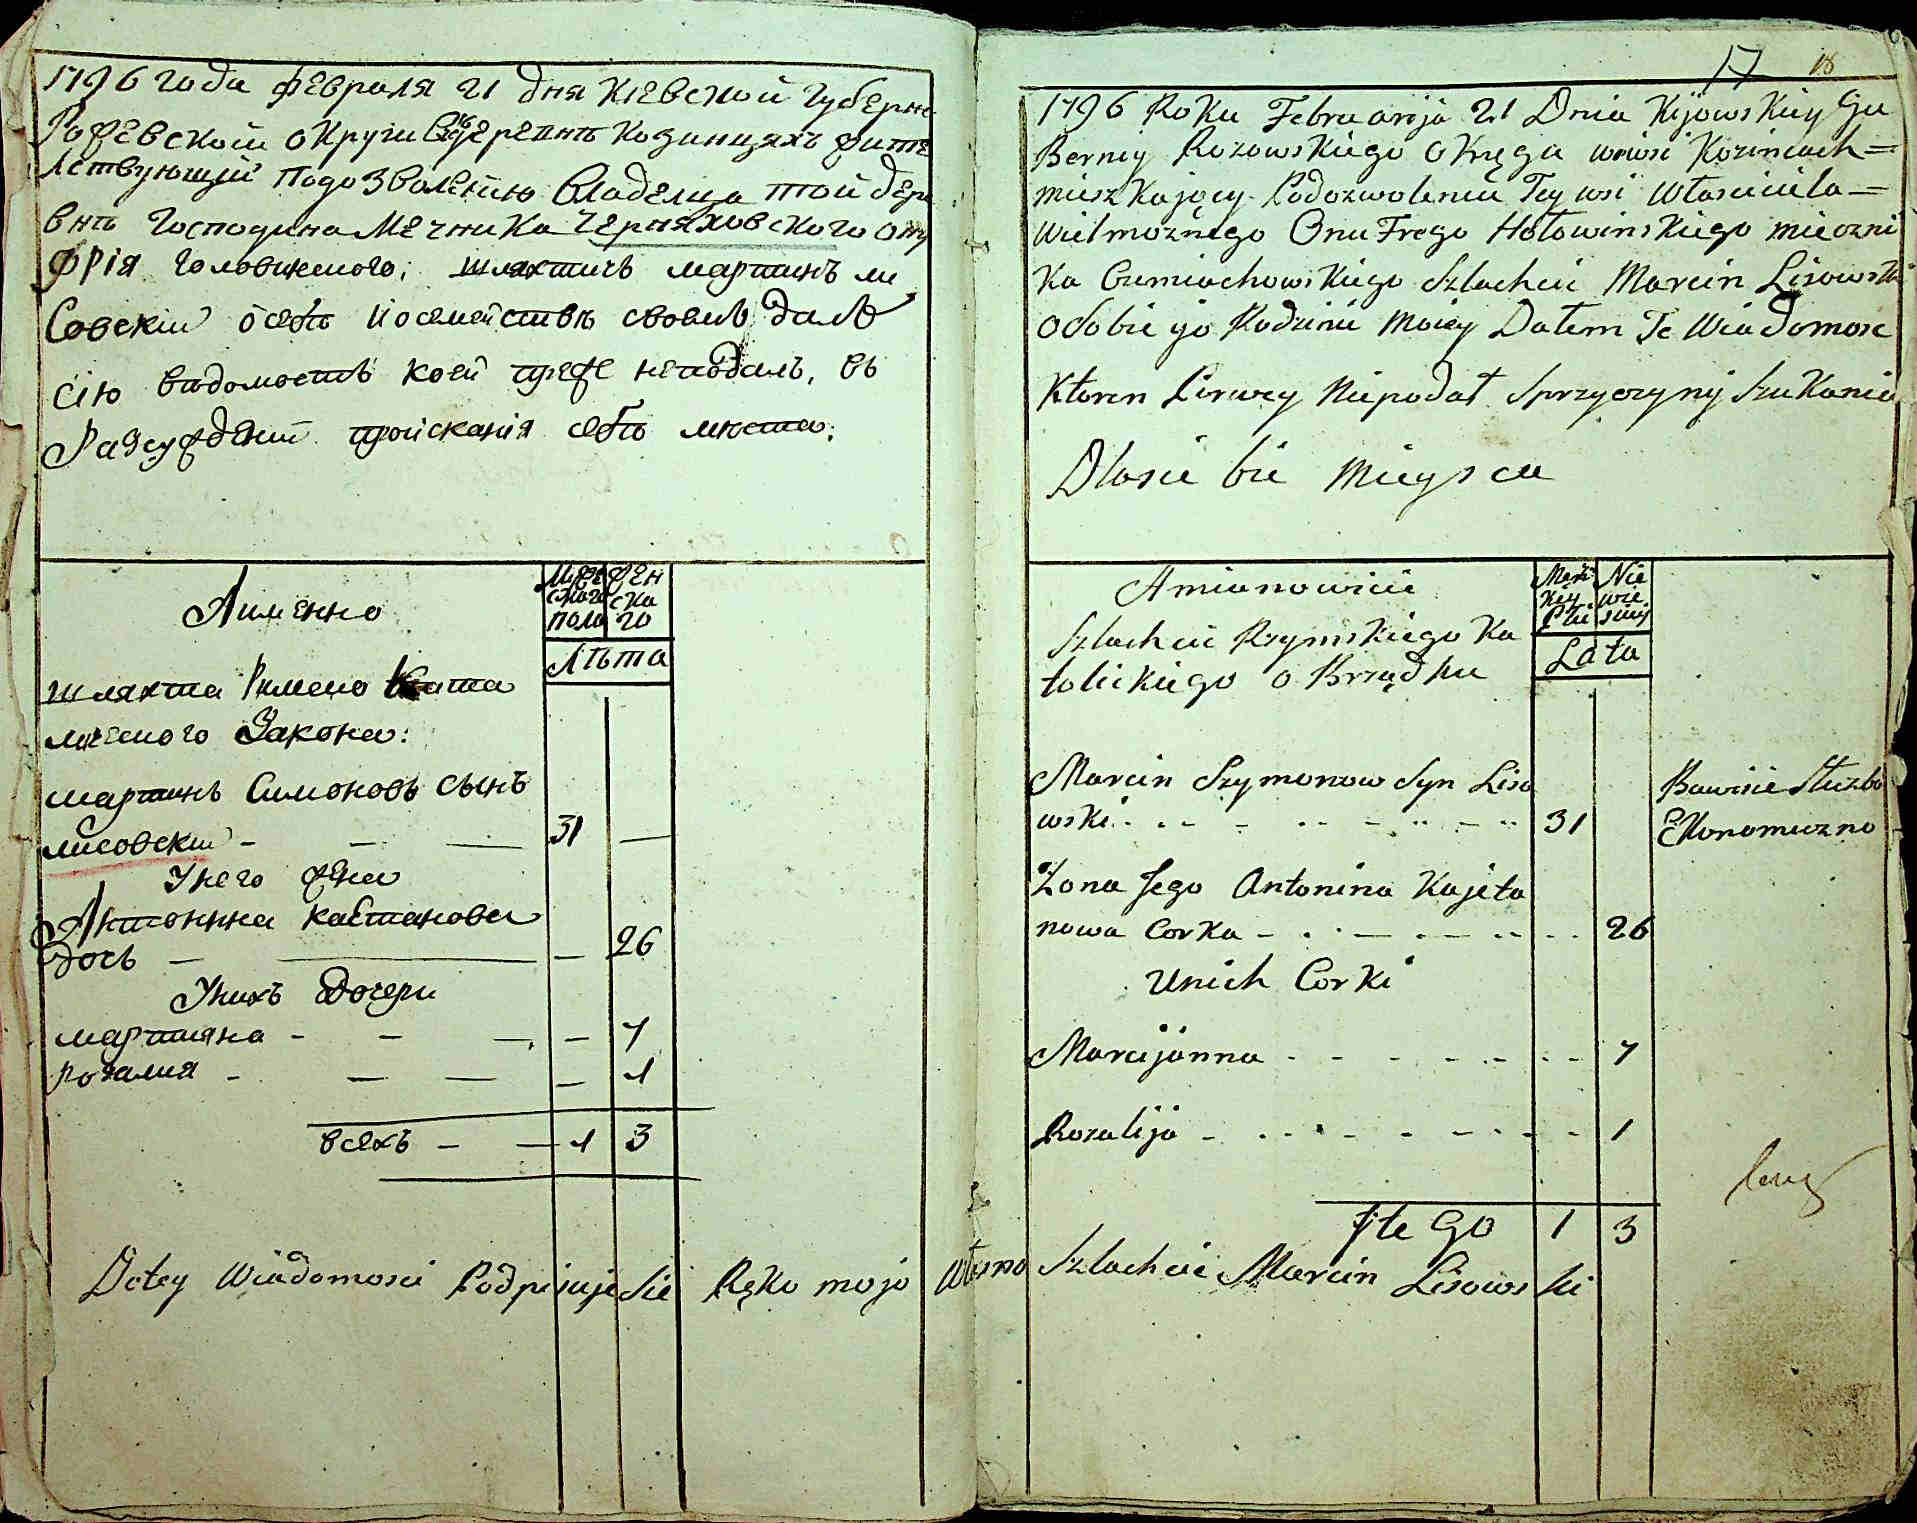 1796 года февраля 21 дня кіевской губерн
Рожевской округи въ деревнѣ Козинцяхъ жите
лствующій подозволенію владелца той дере
внѣ господина мечника черняховского ону
фрія головинского; шляхтичъ мартинъ ли
совскій о себѣ и осемействѣ своемъ далъ
сію ведомость коей преже неподалъ, въ
разсуждении происканія себѣ места;
Аименно
мужескаго пола
женскаго
Лѣта
шляхта Римско Като
лического Закона:
мартинъ Симоновъ сынъ
лисовскій - — — 31 —
Унего жена
Антонина каетанова
дочь — — — 26
Унихъ дочери
мартияна - - — — 7
розалия - — — — 1
всехъ — — 1 3
Detey Wiadomosci Podpisuje Sie Ręko mojo własno Szlachcic Marcin Lisowski
17 18
1796 Roku Februarija 21 Dnia Kijowskiey Gu
Berniy Rozowskiego okręga wewsi Kozincach=
mieszkający Podozwoleniu Tey wsi Własciciela=
wielmoznego Onufrego Hołowinskiego mieczni
ka Czerniachowskiego Szlachcic Marcin Lisowski
o Sobie yo Rodzinie moiey Dałem Te Wiadomosc
Ktoren Pierwey Niepodał Sprzyczyny Szukania
Dlasie bie mieysca
Amianowicie
Męs
kiey
Płci
Nie
wie
sciey
Lata
Szlachcic Rzymskiego Ka
tolickiego o Brządku
Marcin Szymonow Syn Liso
wski - - - - 31
Bawisie Służbo
Ekonomiczno
Żona Jego Antonina Kajeta
nowa Corka - - - - 26
Unich Corki
Marcijanna - - - - 7
Rozalija - - - - 1
Jtego 1 3